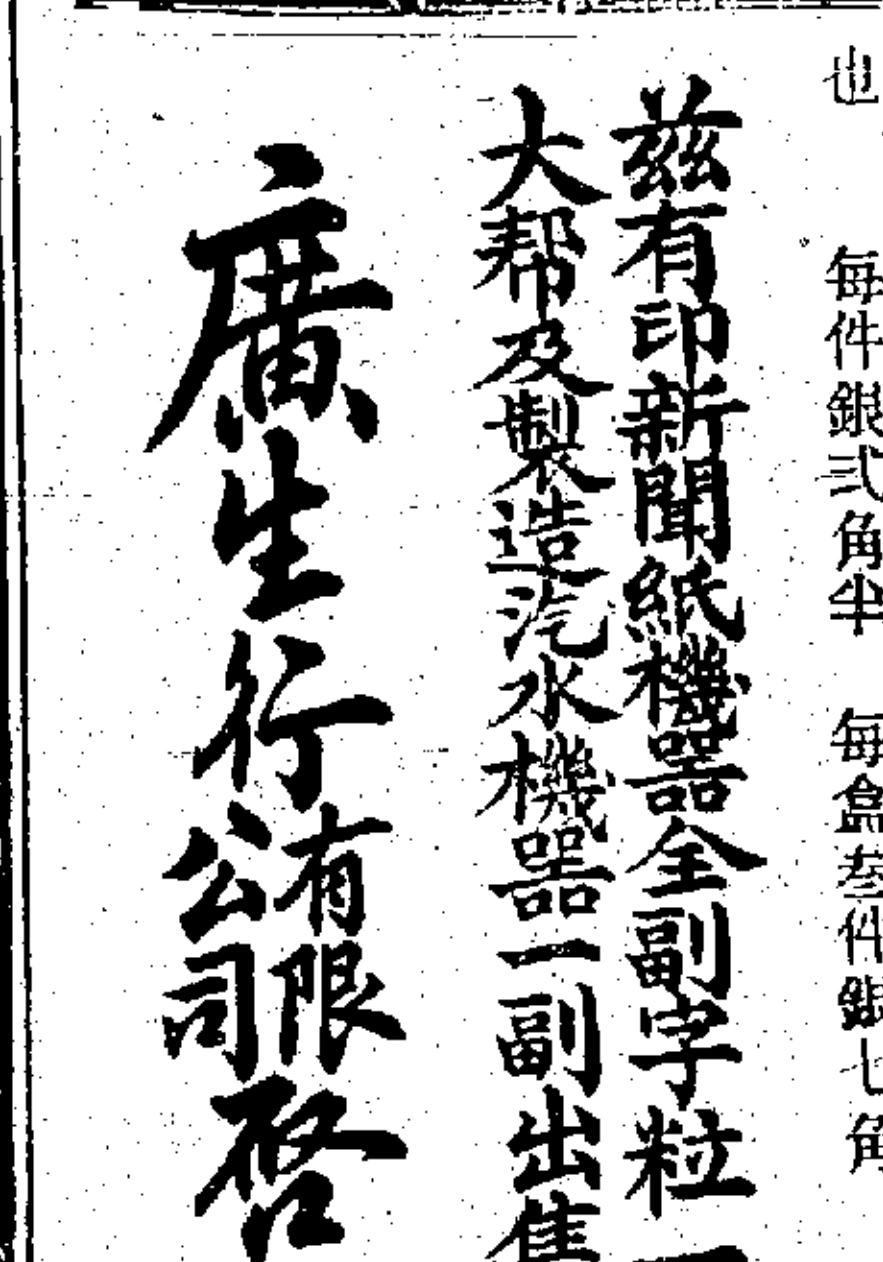 也 每件銀弍角半 每盒叁件銀七角
茲有印新聞紙機器全副字粒一
大帮及製造汽水機器一副出售
廣生行有限公司啓